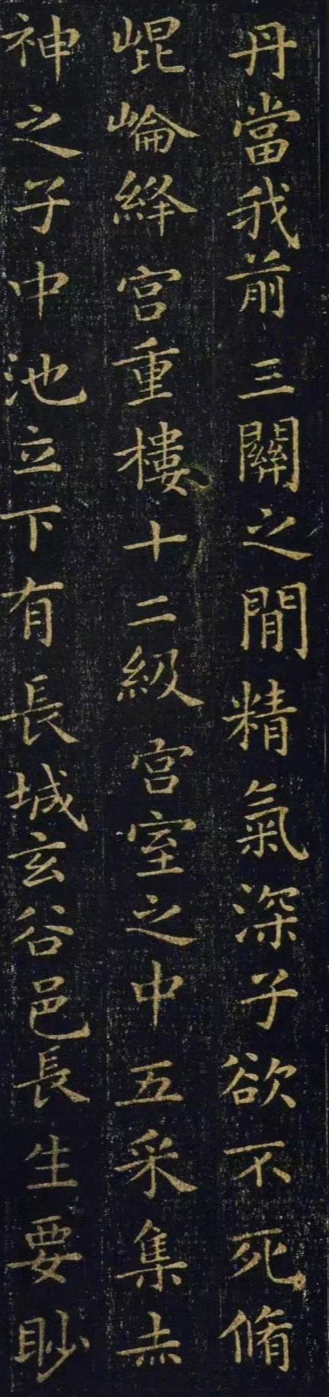 丹當我前三關之閒精氣深子欲不死脩
崐崘絳宫重樓十二級宫室之中五采集赤
神之子中池立下有長城玄谷邑長生要眇